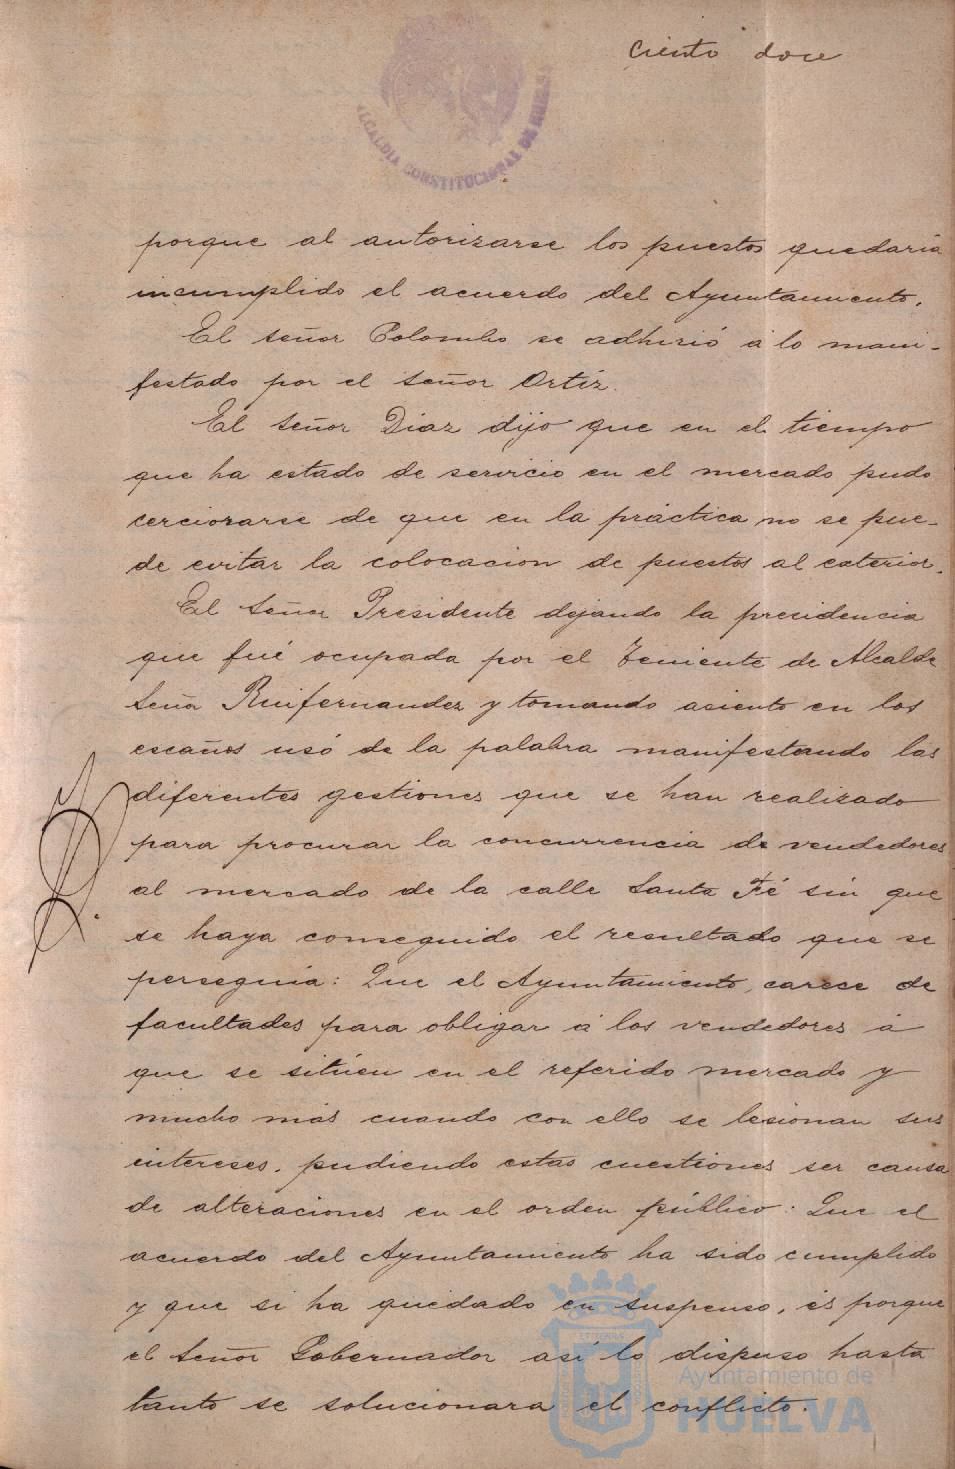 ciento doce
ALCALDIA CONSTITUCIONAL DE HUELVA
porque al autorizarse los puestos quedaria
incumplido el acuerdo del Ayuntamiento.
El señor Colombo se adhirió á lo mani-
festado por el señor Ortiz.
El señor Diaz dijo que en el tiempo
que ha estado de servicio en el mercado pudo
cerciorarse de que en la práctica no se pue-
de evitar la colocacion de puestos al exterior.
El Señor Presidente dejando la presidencia
que fué ocupada por el Teniente de Alcalde
Señor Ruifernandez y tomando asiento en los
escaños usó de la palabra manifestando las
diferentes gestiones que se han realizado
para procurar la concurrencia de vendedores
al mercado de la calle Santa Fé sin que
se haya conseguido el resultado que se
perseguia: Que el Ayuntamiento, carece de
facultades para obligar á los vendedores á
que se sitúen en el referido mercado y
mucho más cuando con ello se lesionan sus
intereses, pudiendo estas cuestiones ser causa
de alteraciones en el orden público: Que el
acuerdo del Ayuntamiento ha sido cumplido
y que si ha quedado en suspenso, és porque
el Señor Gobernador así lo dispuso hasta
tanto se solucionara el conflicto.
Ayuntamiento de
HUELVA